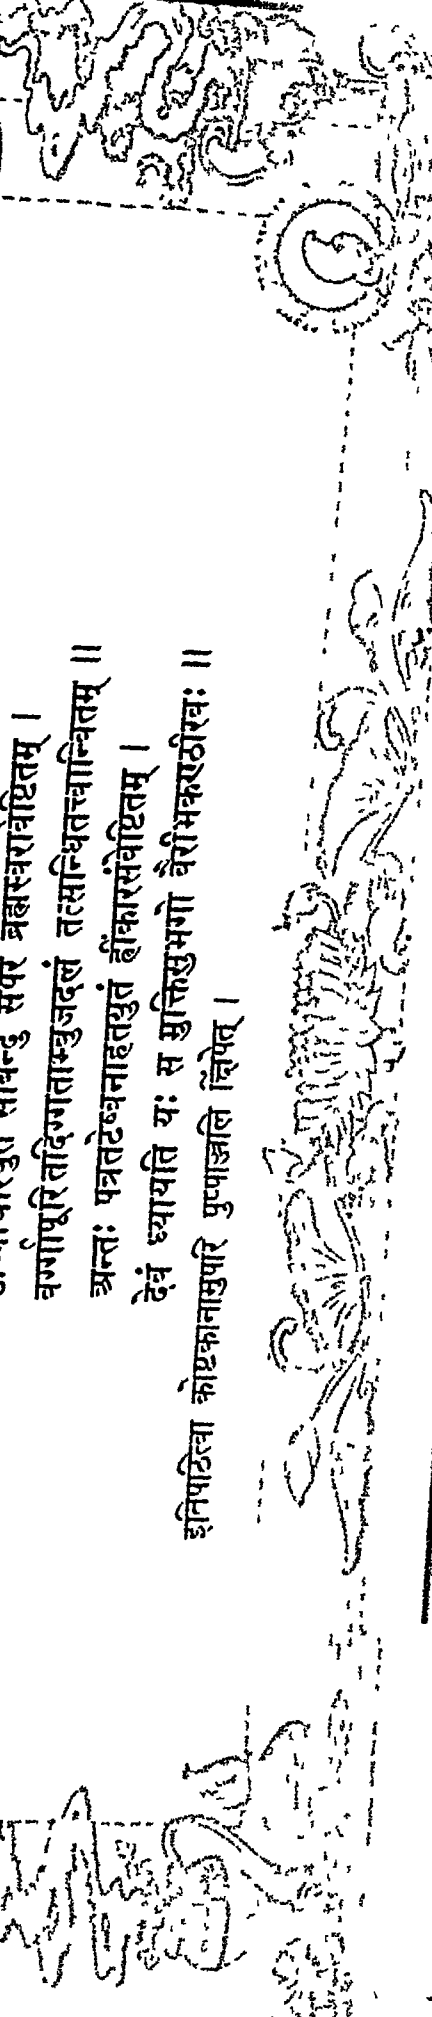 सबिन्दु सपरं ब्रह्मस्वरावेष्टितम् ।
वर्ग्गापूरितदिग्गताम्बुजदलं तत्सन्धितत्त्वान्वितम् ॥
अन्तः पत्रतटेष्वनाहतयुतं ह्रींकारसंवेष्टितम् ।
देवं ध्यायति यः स मुक्तिसुभगो वैरीभकण्ठीरवः ॥
इतिपठित्वा कोष्टकानामुपरि पुष्पाञ्जलिं क्षिपेत् ।